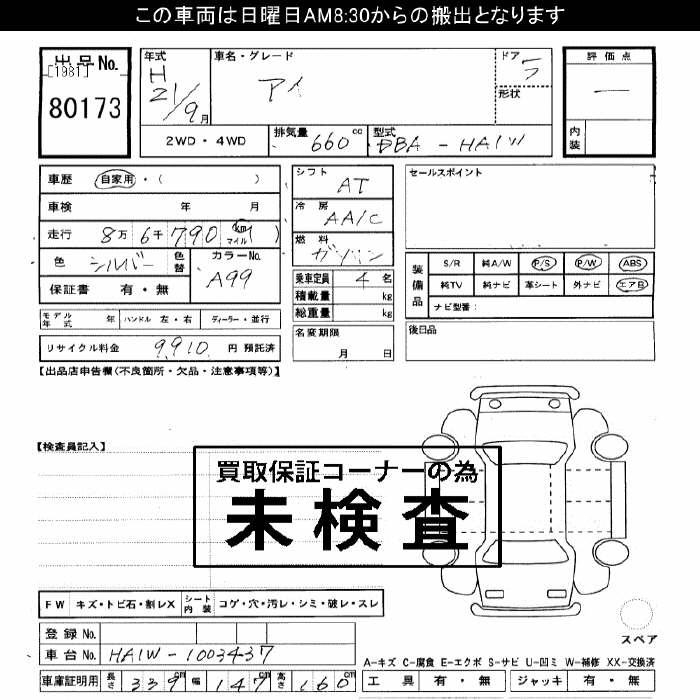 この車両は日曜日AM8:30からの搬出となります
出品No.
[1981]
80173
年式
H
21/9月
車名・グレード
アイ
ドア
5
形状
評価点
—
内装
2WD・4WD
排気量 660 cc
型式 DBA-HA1W
車歴 自家用・( )
車検 年 月
走行 8万6千790 km マイル )
色 シルバー 色替
カラーNo. A99
保証書 有・無
シフト AT
冷房 AAC
燃料 ガソリン
乗車定員 4名
積載量 kg
総重量 kg
名変期限
月 日
セールスポイント
装備品
S/R 純A/W P/S P/W ABS
純TV 純ナビ 革シート 外ナビ エアB
ナビ型番:
後日品
モデル年式 年 ハンドル 左・右 ディーラー・並行
リサイクル料金 9,910 円 預託済
【出品店申告欄(不良箇所・欠品・注意事項等)】
【検査員記入】
買取保証コーナーの為
未検査
FW キズ・トビ石・割レX シート内装 コゲ・穴・汚レ・シミ・破レ・スレ
登録No.
車台No. HA1W-1003437
車庫証明用 長さ 339cm 幅 147cm 高さ 160cm
スペア
A-キズ C-腐食 E-エクボ S-サビ U-凹ミ W-補修 XX-交換済
工具 有・無 ジャッキ 有・無